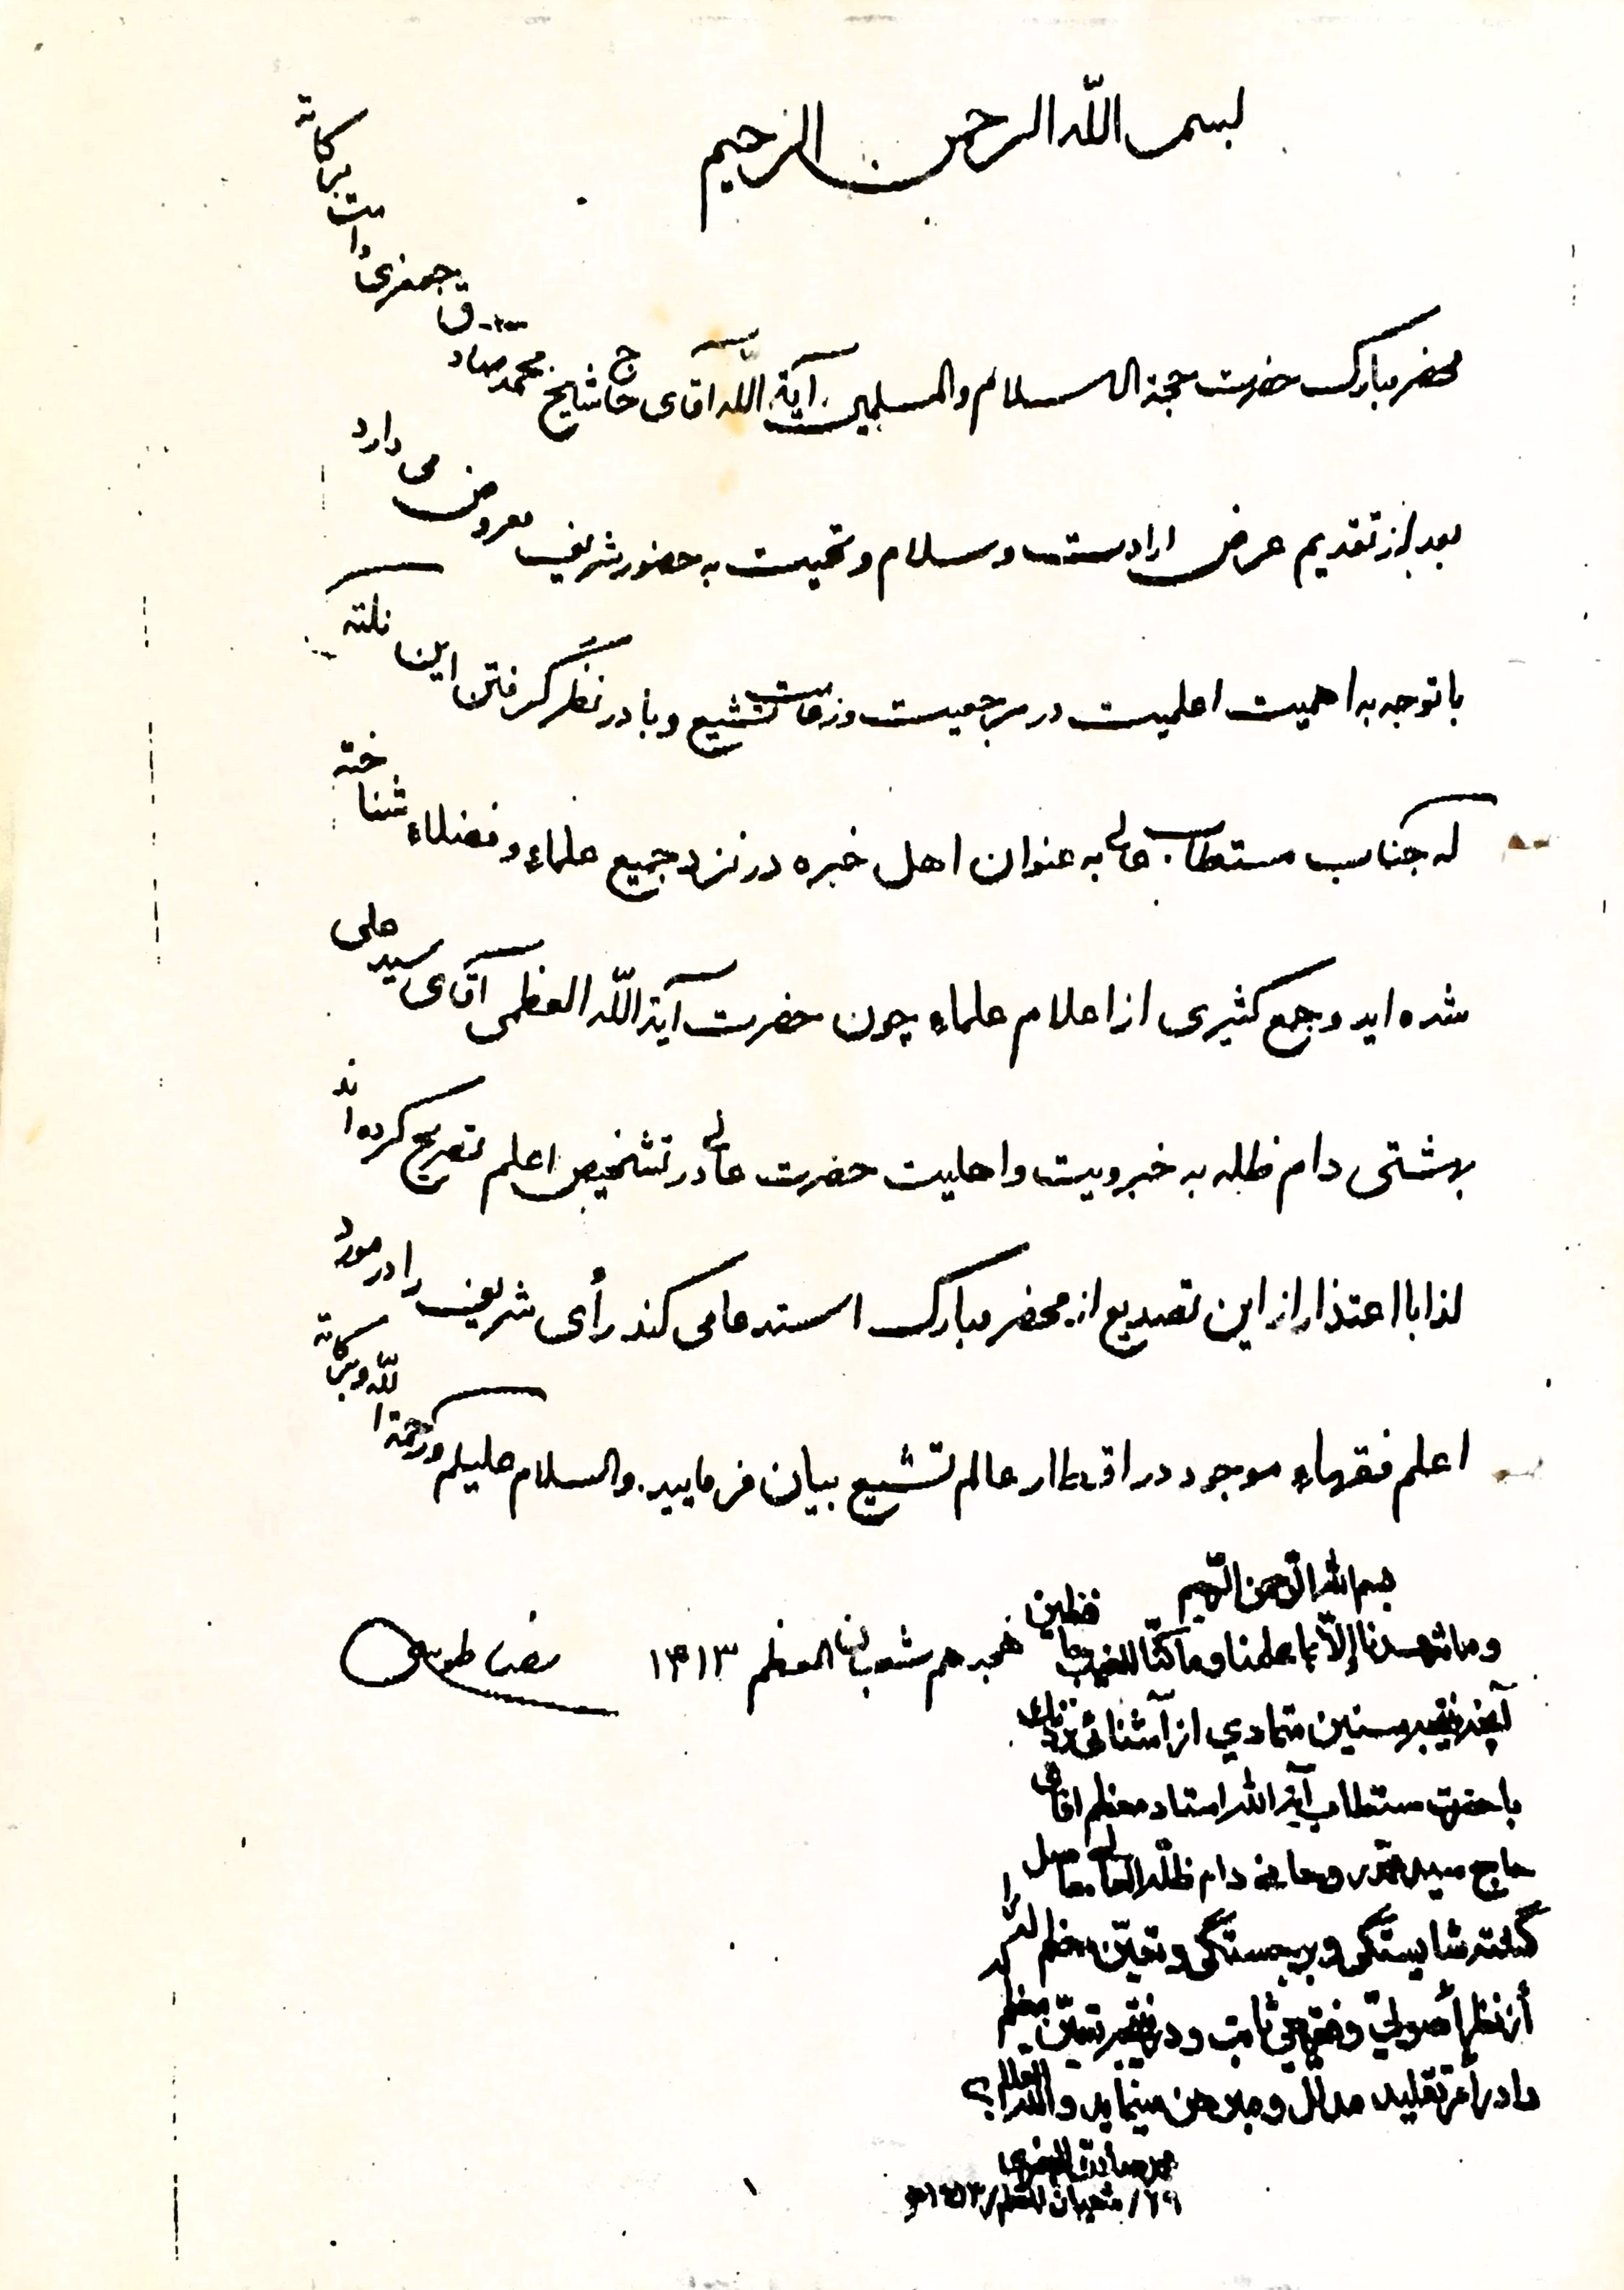 بسم الله الرحمن الرحیم
محضر مبارک حضرت حجة الاسلام والمسلمین آیة الله آقای حاج شیخ محمد صادق جعفری دامت برکاته
بعد از تقدیم عرض ارادت و سلام و تحیت به حضور شریف معروض می دارد
با توجه به اهمیت اعلمیت در مرجعیت و زعامت تشیع و با در نظر گرفتن این نکته
که جناب مستطاب عالی به عنوان اهل خبره در نزد جمیع علماء و فضلاء شناخته
شده اید و جمع کثیری از اعلام علماء چون حضرت آیة الله العظمی آقای سید علی
بهشتی دام ظله به خبرویت و اهلیت حضرت عالی در تشخیص اعلم تصریح کرده اند
لذا با اعتذار از این تصدیع از محضر مبارک استدعا می کند رأی شریف را در مورد
اعلم فقهاء موجود در اقطار عالم تشیع بیان فرمایید. والسلام علیکم ورحمة الله وبرکاته
هجدهم شعبان المعظم ۱۴۱۳
بسم الله الرحمن الرحیم
وما شهدنا إلّا بما علمنا وما کنّا للغیب حافظین
آنچه در سنین متمادي از آشنائی نزدیک
با حضرت مستطاب آیة الله استاد معظم آقای
حاج سید محمد روحانی دام ظلّه العالی حاصل
گشته شایستگی و برجستگی و تعیّن معظم له را
از نظر أصولیّ وفقهيّ ثابت و در نتیجه تعیّن معظم له
را در أمر تقلید مدلّل و مبرهن مینماید والله العالم
محمد صادق الجعفری
۲۹/ شعبان المعظم/۱۴۱۳ه
۱